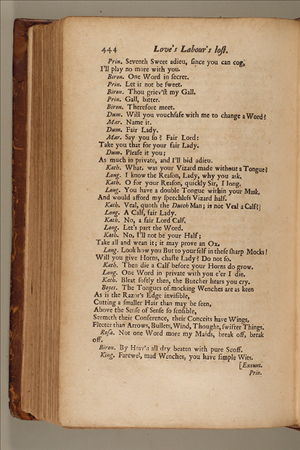 444 Love's Labour's lost.
Prin. Seventh Sweet adieu, since you can cog,
I'll play no more with you.
Biron. One Word in secret.
Prin. Let it not be sweet.
Biron. Thou griev'st my Gall.
Prin. Gall, bitter.
Biron. Therefore meet.
Dum. Will you vouchsafe with me to change a Word?
Mar. Name it.
Dum. Fair Lady.
Mar. Say you so? Fair Lord:
Take you that for your fair Lady.
Dum. Please it you;
As much in private, and I'll bid adieu.
Kath. What, was your Vizard made without a Tongue?
Long. I know the Reason, Lady, why you ask.
Kath. O for your Reason, quickly Sir, I long.
Long. You have a double Tongue within your Mask,
And would afford my speechless Vizard half.
Kath. Veal, quoth the Dutch Man; is not Veal a Calf?
Long. A Calf, fair Lady.
Kath. No, a fair Lord Calf.
Long. Let's part the Word.
Kath. No, I'll not be your Half;
Take all and wean it; it may prove an Ox.
Long. Look how you But to your self in these sharp Mocks!
Will you give Horns, chaste Lady? Do not so.
Kath. Then die a Calf before your Horns do grow.
Long. One Word in private with you e'er I die.
Kath. Bleat softly then, the Butcher hears you cry.
Boyet. The Tongues of mocking Wenches are as keen
As is the Razor's Edge invisible,
Cutting a smaller Hair than may be seen,
Above the Sense of Sense so sensible,
Seemeth their Conference, their Conceits have Wings,
Fleeter than Arrows, Bullets, Wind, Thought, swifter Things.
Rosa. Not one Word more my Maids, break off, break
off.
Biron. By Heav'n all dry beaten with pure Scoff.
King. Farewel, mad Wenches, you have simple Wits.
[Exeunt.
Prin.